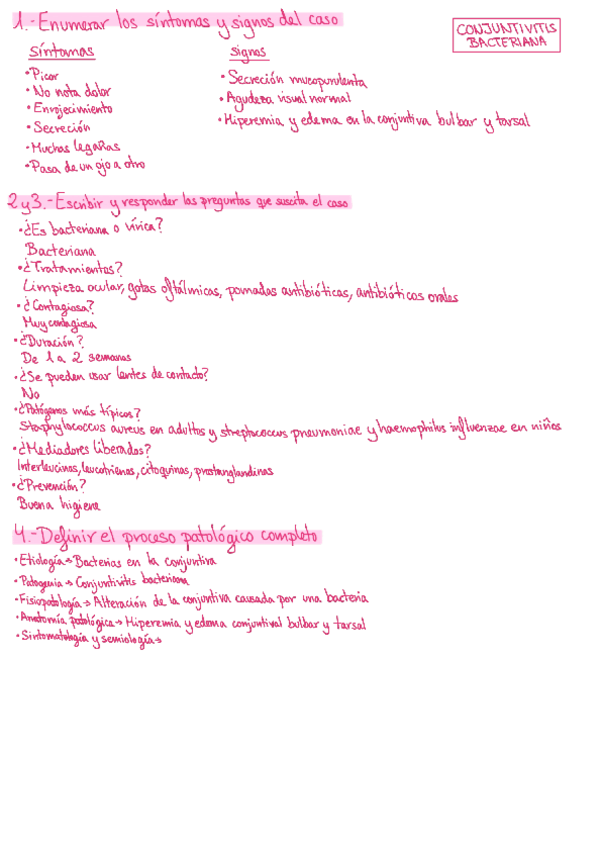 1.-Enumerar los síntomas y signos del caso
CONJUNTIVITIS
BACTERIANA
Síntomas
•Picor
•No nota dolor
•Enrojecimiento
•Secreción
•Muchas legañas
•Pasa de un ojo a otro
Signos
•Secreción mucopurulenta
•Agudeza visual normal
•Hiperemia y edema en la conjuntiva bulbar y tarsal
2 y 3.-Escribir y responder las preguntas que suscita el caso
•¿Es bacteriana o vírica?
Bacteriana
•¿Tratamientos?
Limpieza ocular, gotas oftálmicas, pomadas antibióticas, antibióticos orales
•¿Contagiosa?
Muy contagiosa
•¿Duración?
De 1 a 2 semanas
•¿Se pueden usar lentes de contacto?
No
•¿Patógenos más típicos?
Staphylococcus aureus en adultos y streptococcus pneumoniae y haemophilus influenzae en niños
•¿Mediadores liberados?
Interleucinas, leucotrienos, citoquinas, prostanglandinas
•¿Prevención?
Buena higiene
4.-Definir el proceso patológico completo
•Etiología→Bacterias en la conjuntiva
•Patogenia→Conjuntivitis bacteriana
•Fisiopatología→Alteración de la conjuntiva causada por una bacteria
•Anatomía patológica→Hiperemia y edema conjuntival bulbar y tarsal
•Sintomatología y semiología→